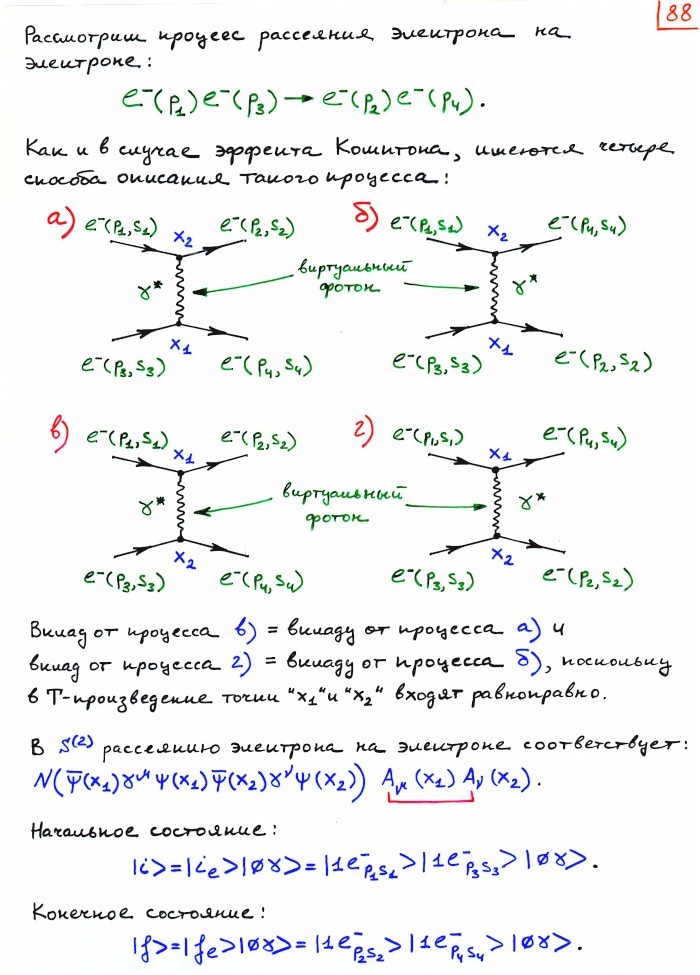 88
Рассмотрим процесс рассеяния электрона на
электроне:
e⁻(p₁) e⁻(p₃) → e⁻(p₂) e⁻(p₄).
Как и в случае эффекта Комптона, имеются четыре
способа описания такого процесса:
а) e⁻(p₁,s₁) x₂ e⁻(p₂,s₂) б) e⁻(p₁,s₁) x₂ e⁻(p₄,s₄)
γ* виртуальный фотон γ*
x₁ x₁
e⁻(p₃,s₃) e⁻(p₄,s₄) e⁻(p₃,s₃) e⁻(p₂,s₂)
в) e⁻(p₁,s₁) x₁ e⁻(p₂,s₂) г) e⁻(p₁,s₁) x₁ e⁻(p₄,s₄)
γ* виртуальный фотон γ*
x₂ x₂
e⁻(p₃,s₃) e⁻(p₄,s₄) e⁻(p₃,s₃) e⁻(p₂,s₂)
Вклад от процесса в) = вкладу от процесса а) и
вклад от процесса г) = вкладу от процесса б), поскольку
в Т-произведение точки "x₁" и "x₂" входят равноправно.
В S⁽²⁾ рассеянию электрона на электроне соответствует:
N(ψ̄(x₁)γ^μ ψ(x₁) ψ̄(x₂)γ^ν ψ(x₂)) A_μ(x₁) A_ν(x₂).
Начальное состояние:
|i> = |i_e>|0γ> = |1e⁻_p₁s₁>|1e⁻_p₃s₃>|0γ>.
Конечное состояние:
|f> = |f_e>|0γ> = |1e⁻_p₂s₂>|1e⁻_p₄s₄>|0γ>.